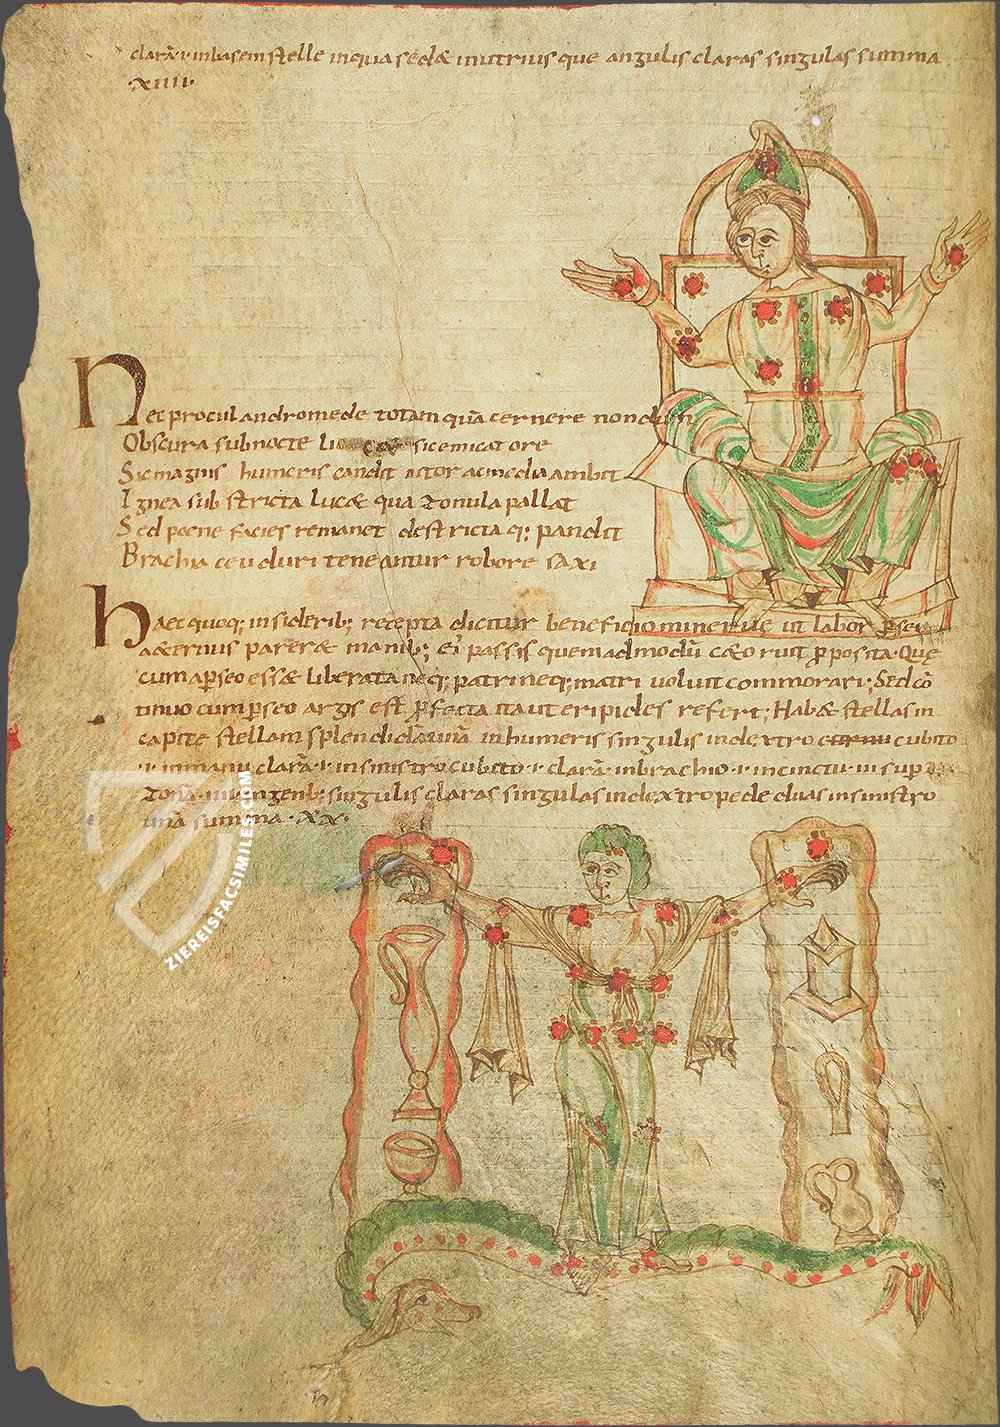 clarā·i·inbasem stelle in qua sedæ inutrius que angulis claras singulas summa
·xiiii·
Nec procul andromede totam quā cernere non dum
Obscura sub nocte sic emicat ore
Sic magnis humeris candit nitor ac media ambit
Ignea sub stricta lucæ qua zonula pallat
Sed poene facies remanet destricta q; pandit
Brachia ceu duri teneantur robore saxi
haec quoq; in siderib; recepta dicitur beneficio minerve ut labor persei
aæternus pareræ manib; ei passis quemadmodū cæo ruit pposita· Quę
cum apseo essæ liberata neq; patri neq; matri voluit commorari; Sed cō
tinuo cum pseo argis est pfecta ita ut eripides refert; Habæ stellas in
capite stellam splendidā unā in humeris singulis in dextro cubito
·i· in manu clarā·i· in sinistro cubito·i· clarā in brachio·i· in cinctu·iii sup
zonā·iiii· in genib; singulis claras singulas in dextro pede duas in sinistro
unā summa·xx·
ZIEREISFACSIMILES.COM